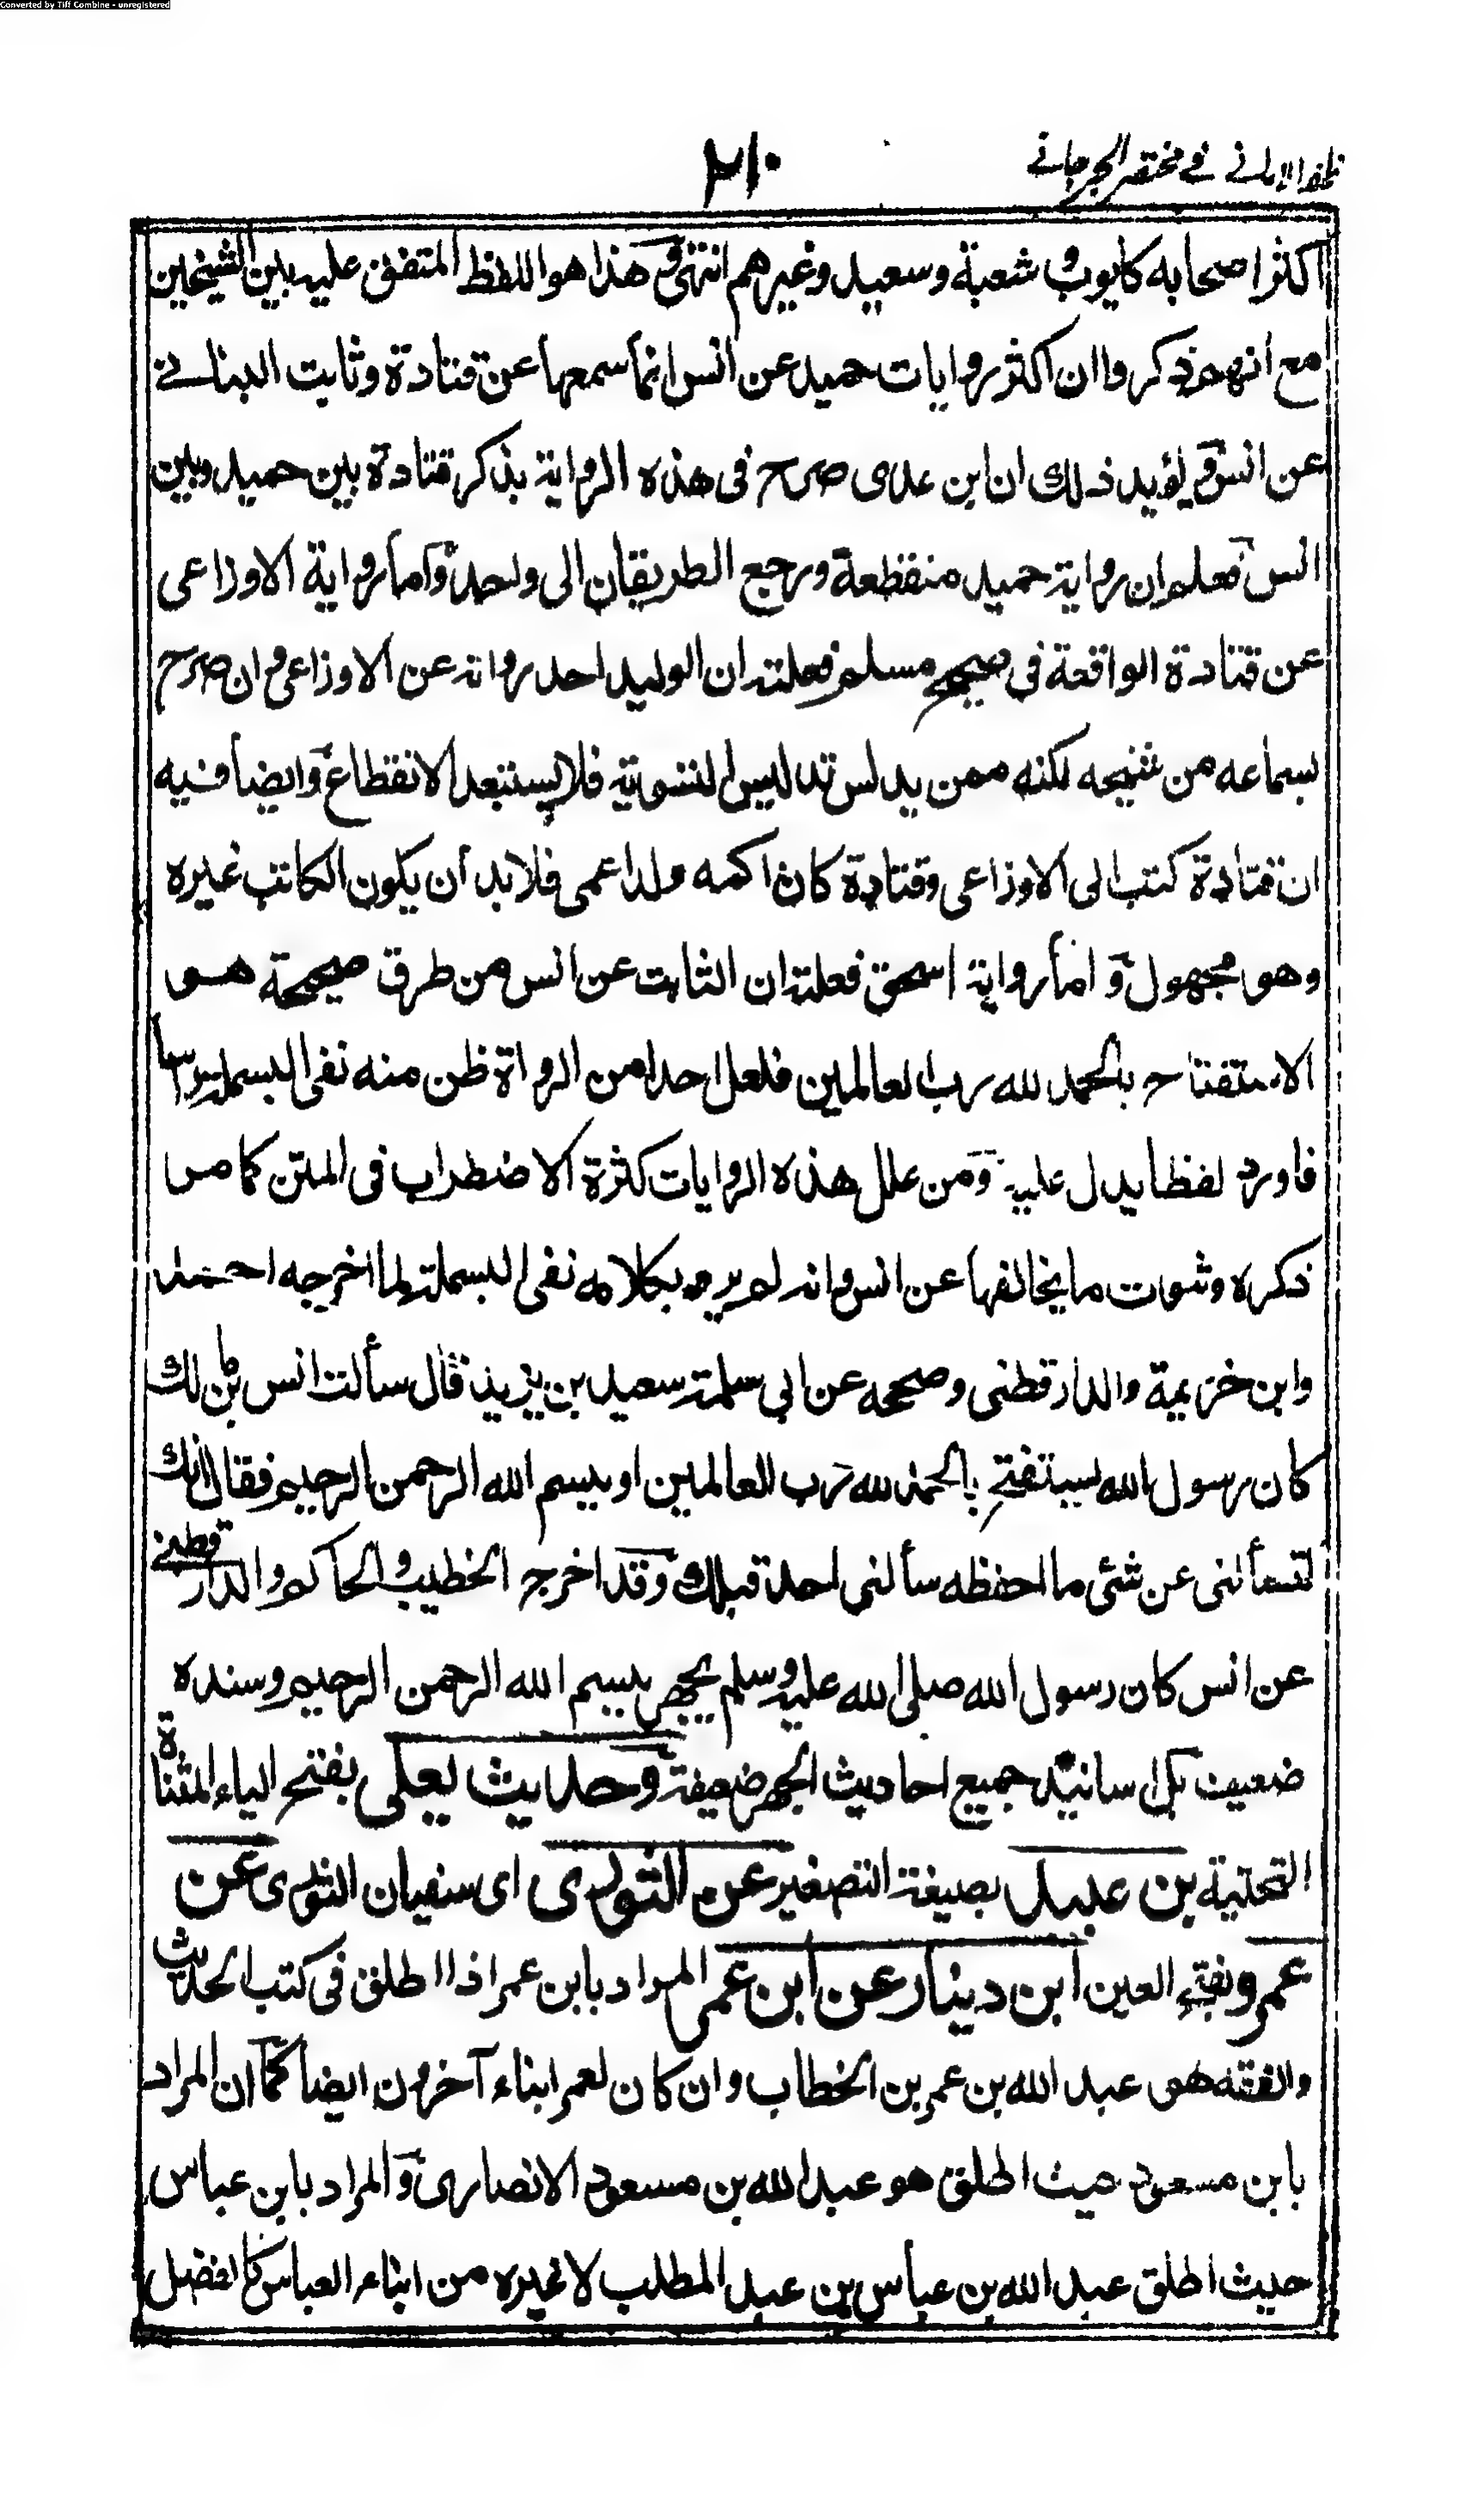 Converted by Tiff Combine - unregistered
ظفر الامانى فى مختصر الجرجانى
٢١٠
اكثر اصحابه كايوب وشعبة وسعيد وغيرهم انتهى وهذا هو اللفظ المتفق عليه بين الشيخين
مع انهم ذكروا ان اكثر روايات حميد عن انس انما سمعها عن قتادة وثابت البنانى
عن انس ويؤيد ذلك ان ابن عدى صرح فى هذه الرواية بذكر قتادة بين حميد وبين
انس فعلم ان رواية حميد منقطعة ورجع الطريقان الى واحد واما رواية الاوزاعى
عن قتادة الواقعة فى صحيح مسلم فعلته ان الوليد احد رواته عن الاوزاعى وان صرح
بسماعه من شيخه لكنه ممن يدلس تدليس التسوية فلا يستبعد الانقطاع وايضا فيه
ان قتادة كتب الى الاوزاعى وقتادة كان اكمه ولد اعمى فلا بد ان يكون الكاتب غيره
وهو مجهول واما رواية اسحق فعلته ان الثابت عن انس من طرق صحيحة هو
الاستفتاح بالحمد لله رب العالمين فلعل احدا من الرواة ظن منه نفى البسملة راسا
فاورد لفظا يدل عليه ومن علل هذه الروايات كثرة الاضطراب فى المتن كما مر
ذكره وثبوت ما يخالفها عن انس وانه لم يرد بكلامه نفى البسملة لما اخرجه احمد
وابن خزيمة والدارقطنى وصححه عن ابى سلمة سعيد بن يزيد قال سألت انس بن مالك
كان رسول الله يستفتح بالحمد لله رب العالمين او ببسم الله الرحمن الرحيم فقال انك
لتسألنى عن شئ ما احفظه سألنى احد قبلك وقد اخرج الخطيب والحاكم والدارقطنى
عن انس كان رسول الله صلى الله عليه وسلم يجهر ببسم الله الرحمن الرحيم وسنده
ضعيف بل اسانيد جميع احاديث الجهر ضعيفة وحديث يعلى بفتح الياء المثناة
التحتية بن عبيد بصيغة التصغير عن الثورى اى سفيان الثورى عن
عمرو بفتح العين ابن دينار عن ابن عمر المراد بابن عمر اذا اطلق فى كتب الحديث
والفقه هو عبد الله بن عمر بن الخطاب وان كان لعمر ابناء آخرون ايضا كما ان المراد
بابن مسعود حيث اطلق هو عبد الله بن مسعود الانصارى والمراد بابن عباس
حيث اطلق عبد الله بن عباس بن عبد المطلب لا غيره من ابناء العباس كالفضل